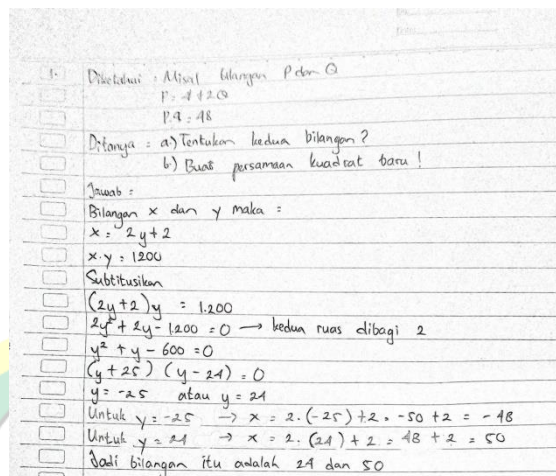 1. Diketahui : Misal bilangan P dan Q
P = 4+2Q
P.Q = 48
Ditanya : a.) Tentukan kedua bilangan ?
b.) Buat persamaan kuadrat baru !
Jawab :
Bilangan x dan y maka :
x = 2y+2
x.y = 1200
Subtitusikan
(2y+2)y = 1.200
2y² + 2y - 1.200 = 0 → kedua ruas dibagi 2
y² + y - 600 = 0
(y + 25) (y - 24) = 0
y = -25 atau y = 24
Untuk y = -25 → x = 2.(-25) + 2 = -50 + 2 = -48
Untuk y = 24 → x = 2. (24) + 2 = 48 + 2 = 50
Jadi bilangan itu adalah 24 dan 50